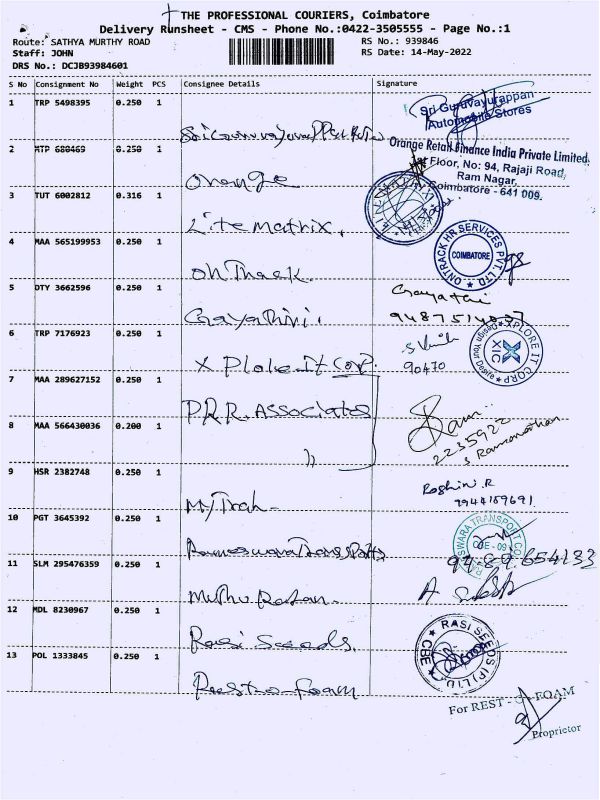 THE PROFESSIONAL COURIERS, Coimbatore
Delivery Runsheet - CMS - Phone No.:0422-3505555 - Page No.:1
Route: SATHYA MURTHY ROAD
RS No.: 939846
Staff: JOHN
RS Date: 14-May-2022
DRS No.: DCJB93984601
S No Consignment No Weight PCS Consignee Details Signature
1 TRP 5498395 0.250 1
Sri Guruvayurappan
Automobile Stores
2 MTP 680469 0.250 1
Orange Retail Finance India Private Limited
Floor, No: 94, Rajaji Road,
Ram Nagar,
Coimbatore - 641 009.
Orange
3 TUT 6002812 0.316 1
Lite Matrix.
4 MAA 565199953 0.250 1
ONTRACK HR SERVICES PVT. LTD
COIMBATORE
5 DTY 3662596 0.250 1
Gayathri
Gayathiri.
6 TRP 7176923 0.250 1
XPLORE IT CORP
XIC
Design Your Degree
90470
X Plore It Corp.
7 MAA 289627152 0.250 1
P.R.R. Associates
8 MAA 566430036 0.200 1
Ram
S Ramanathan
"
9 HSR 2382748 0.250 1
Roshini.R
10 PGT 3645392 0.250 1
Rameswara Transports
11 SLM 295476359 0.250 1
12 MDL 8230967 0.250 1
RASI SEEDS (P) LTD.
CBE
Rasi Seeds.
13 POL 1333845 0.250 1
Restro-foam
For REST - O - FOAM
Proprietor